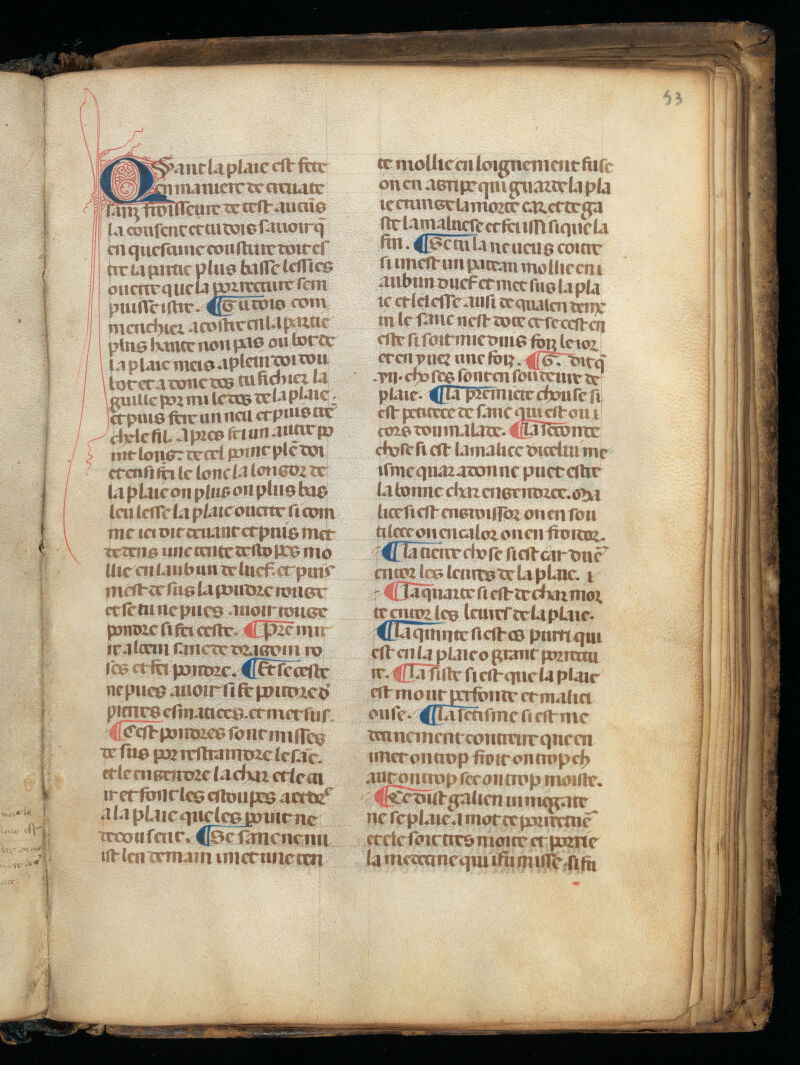 53
Quant la plaie est fete
en maniere de cicuate
sanz froisseure de cest aucuns
la cousent et tu dois savoir q̄
en quescune cousture doit es
tre la partie plus basse lessies
ouerte que la porreture sem
puisse istre. ¶ Tu dois com
menchier a costre en la partie
plus haute non pas ou bot de
la plaie meis a plein doi dou
bot et a donc dos tu fichier la
guille por mi le dos de la plaie.
et puis fere un neu et puis tre
che le fil. Apres fei un autre po
int loing de cel point plē doi
et ensi fei le lonc la longor de
la plaie on plus on plus bas
leu lesse la plaie ouerte si com
me ici dit deuant et puis met
dedens une tente destopes mo
llie en laubun de luef. et puis
mest de sus la poudre rouge
et se tu ne pues auoir rouge
poudre si fei ceste. ¶ Pre mir
re aloein sanc de dragoin ro
ses et fei poudre. ¶ Et se ceste
ne pues auoir si fe poudre d
pierres esmatices. et met sus.
¶ Cest poudres sont misses
de sus por restraindre le sāc.
et le engendre la char et le cu
ir et font les estoupes aerdre
a la plaie que les point ne
decousent. ¶ Se sanc ne nu
ist len demain im et une ten
te mollie en loignement fusc
on en agripe qui guarde la pla
ie et mange la morte car. et dega
ste la maluese et fei issi si que la
fin. ¶ Se tu la ne ueus coitre
siimest un pateau mollie en i
aubun duef et met sus la pla
ie et lelesse ausi de qual en deme
in le sanc nest dote ce se cest en
este si soit mie duus foiz le ior
et en yuer une foiz. ¶ G. dit q̄
.vii. choses sont en soudeure de
plaie. ¶ La premiere chouse si
est petitece de sanc qui est ou i
cors dou malade. ¶ La seconde
chose si est la malice dicelui me
isme quar adonc ne puet estre
la bonne char engendree. Ma
lice si est engroissor on en sou
tilece on en calor on en froidor.
¶ La tierce chose si est car duue
entor les leures de la plaie. i
¶ La quarte si est de char mor
te entor les leures de la plaie.
¶ La quinte si est os purri qui
est en la plaie o grant porretu
re. ¶ La siste si est que la plaie
est mout perfonde et malici
ouse. ¶ La setisme si est me
decinement contreire que en
imet on trop froit on trop ch
aut on trop sec on trop moiste.
¶ Ce dist galien in megate
ne se plaie a mot de porretuē
et ele soit tres moite et porrie
la medecine qui isu misse. si fu